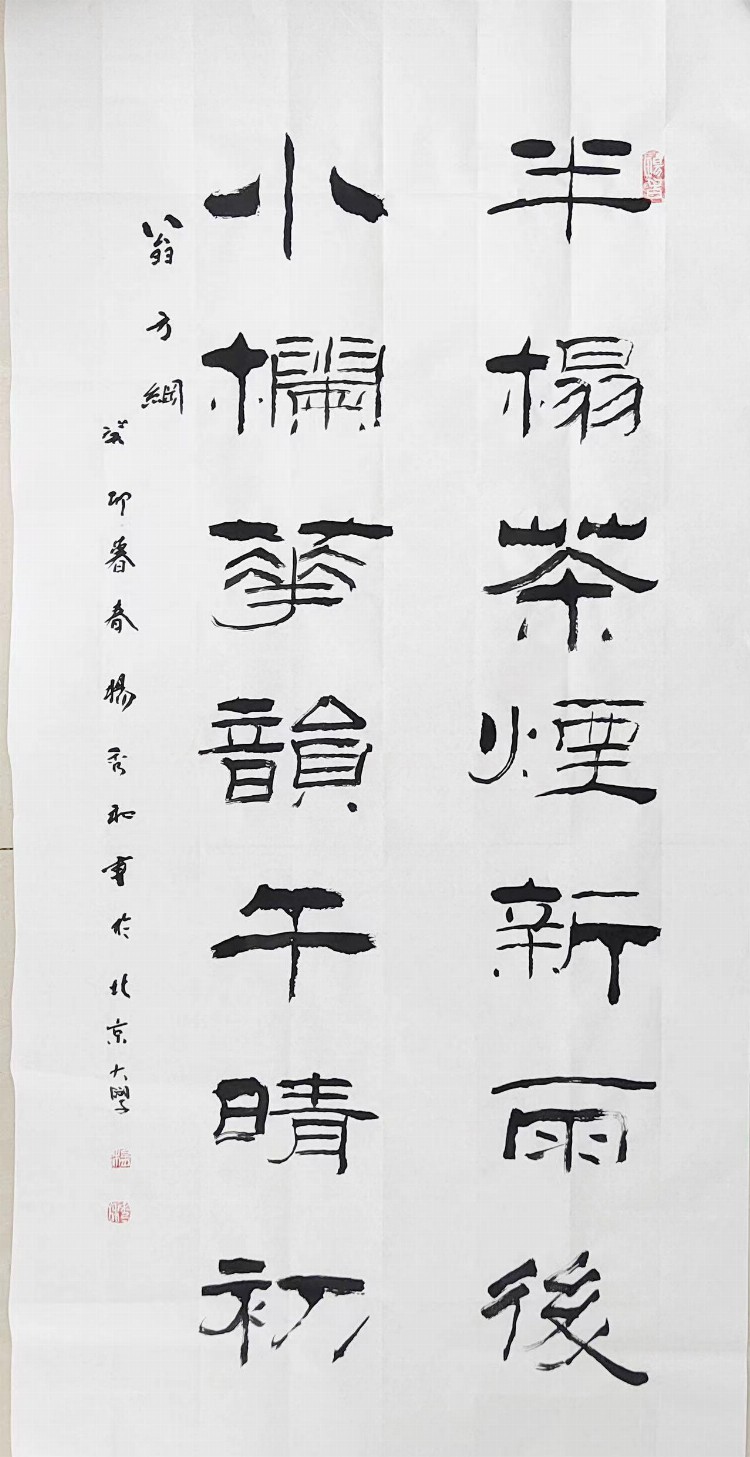 半榻茶煙新雨後
小欄華韻午晴初
翁方綱
癸卯春楊秀和書於北京大學